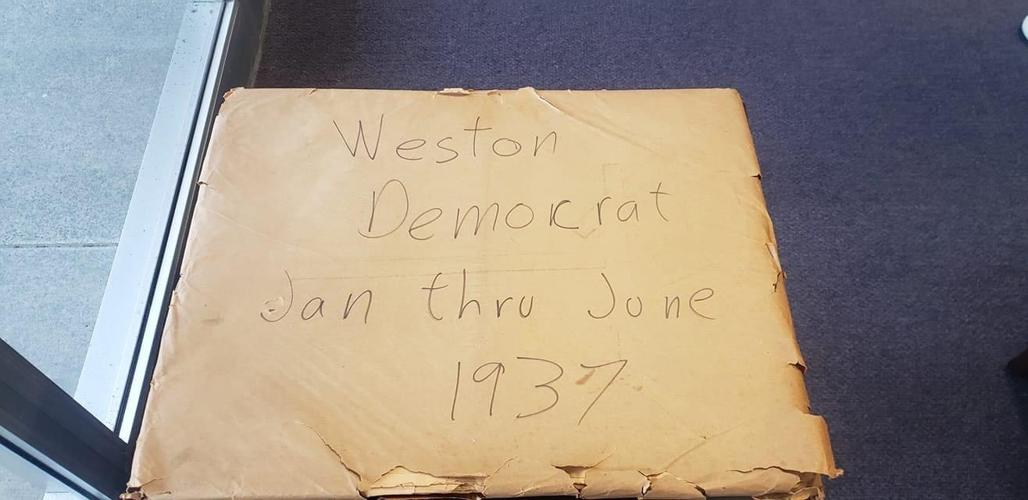 Weston
Democrat
Jan thru June
1937